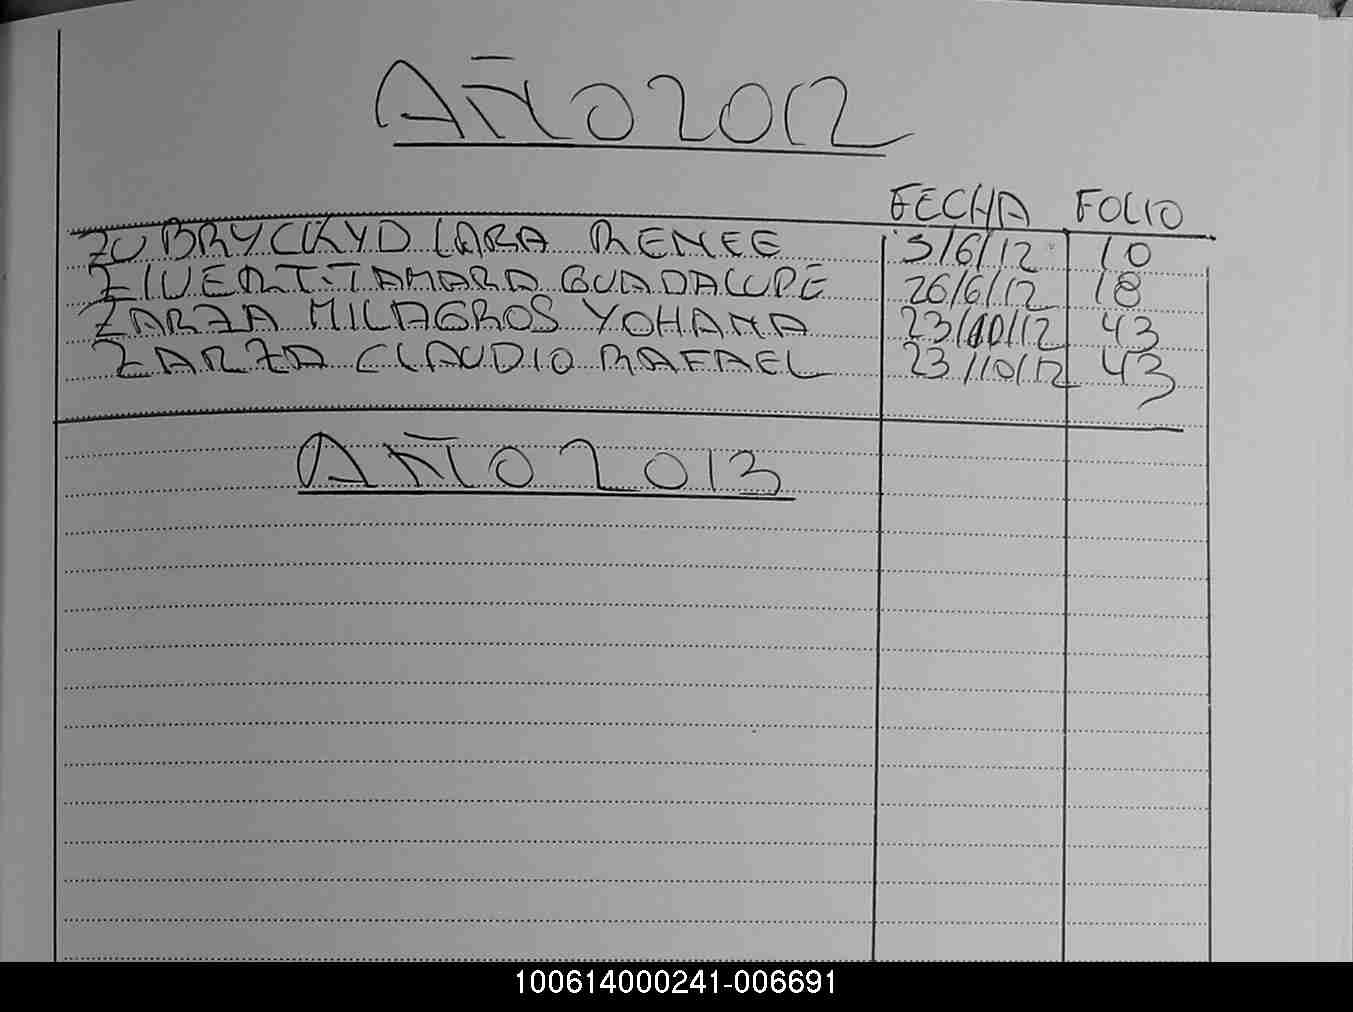 AÑO 2012
FECHA FOLIO
ZUBRYCKYD LARA RENEE 5/6/12 10
TAMARA GUADALUPE 26/6/12 18
ZARZA MILAGROS YOHANA 23/10/12 43
ZARZA CLAUDIO RAFAEL 23/10/12 43
AÑO 2013
100614000241-006691